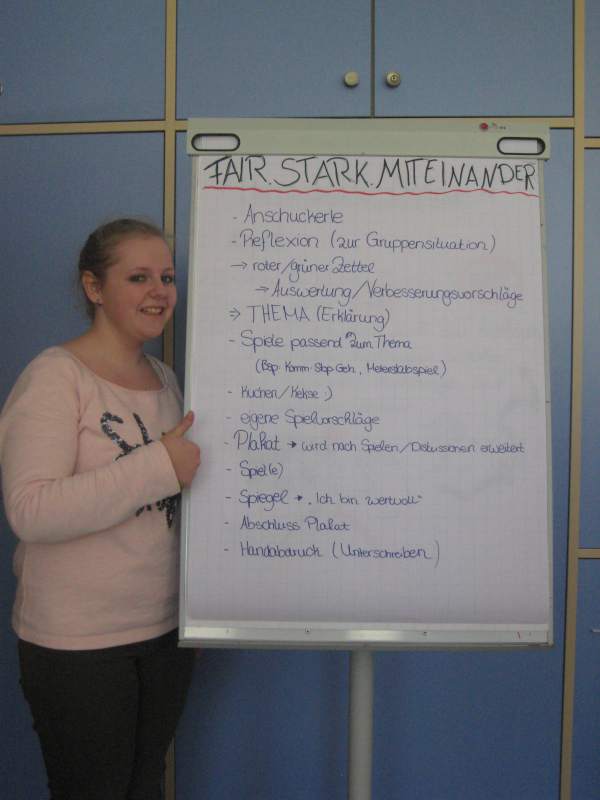 FAIR. STARK. MITEINANDER
- Anschuckerle
- Reflexion (zur Gruppensituation)
→ roter/grüner Zettel
→ Auswertung/Verbesserungsvorschläge
⇒ THEMA (Erklärung)
- Spiele passend zum Thema
(Bsp. Komm-Stop-Geh, Meterstabspiel)
- Kuchen/Kekse :)
- eigene Spielvorschläge
- Plakat → wird nach Spielen/Diskussionen erweitert
- Spiel(e)
- Spiegel → "Ich bin wertvoll"
- Abschluss Plakat
- Handabdruck (Unterschreiben)